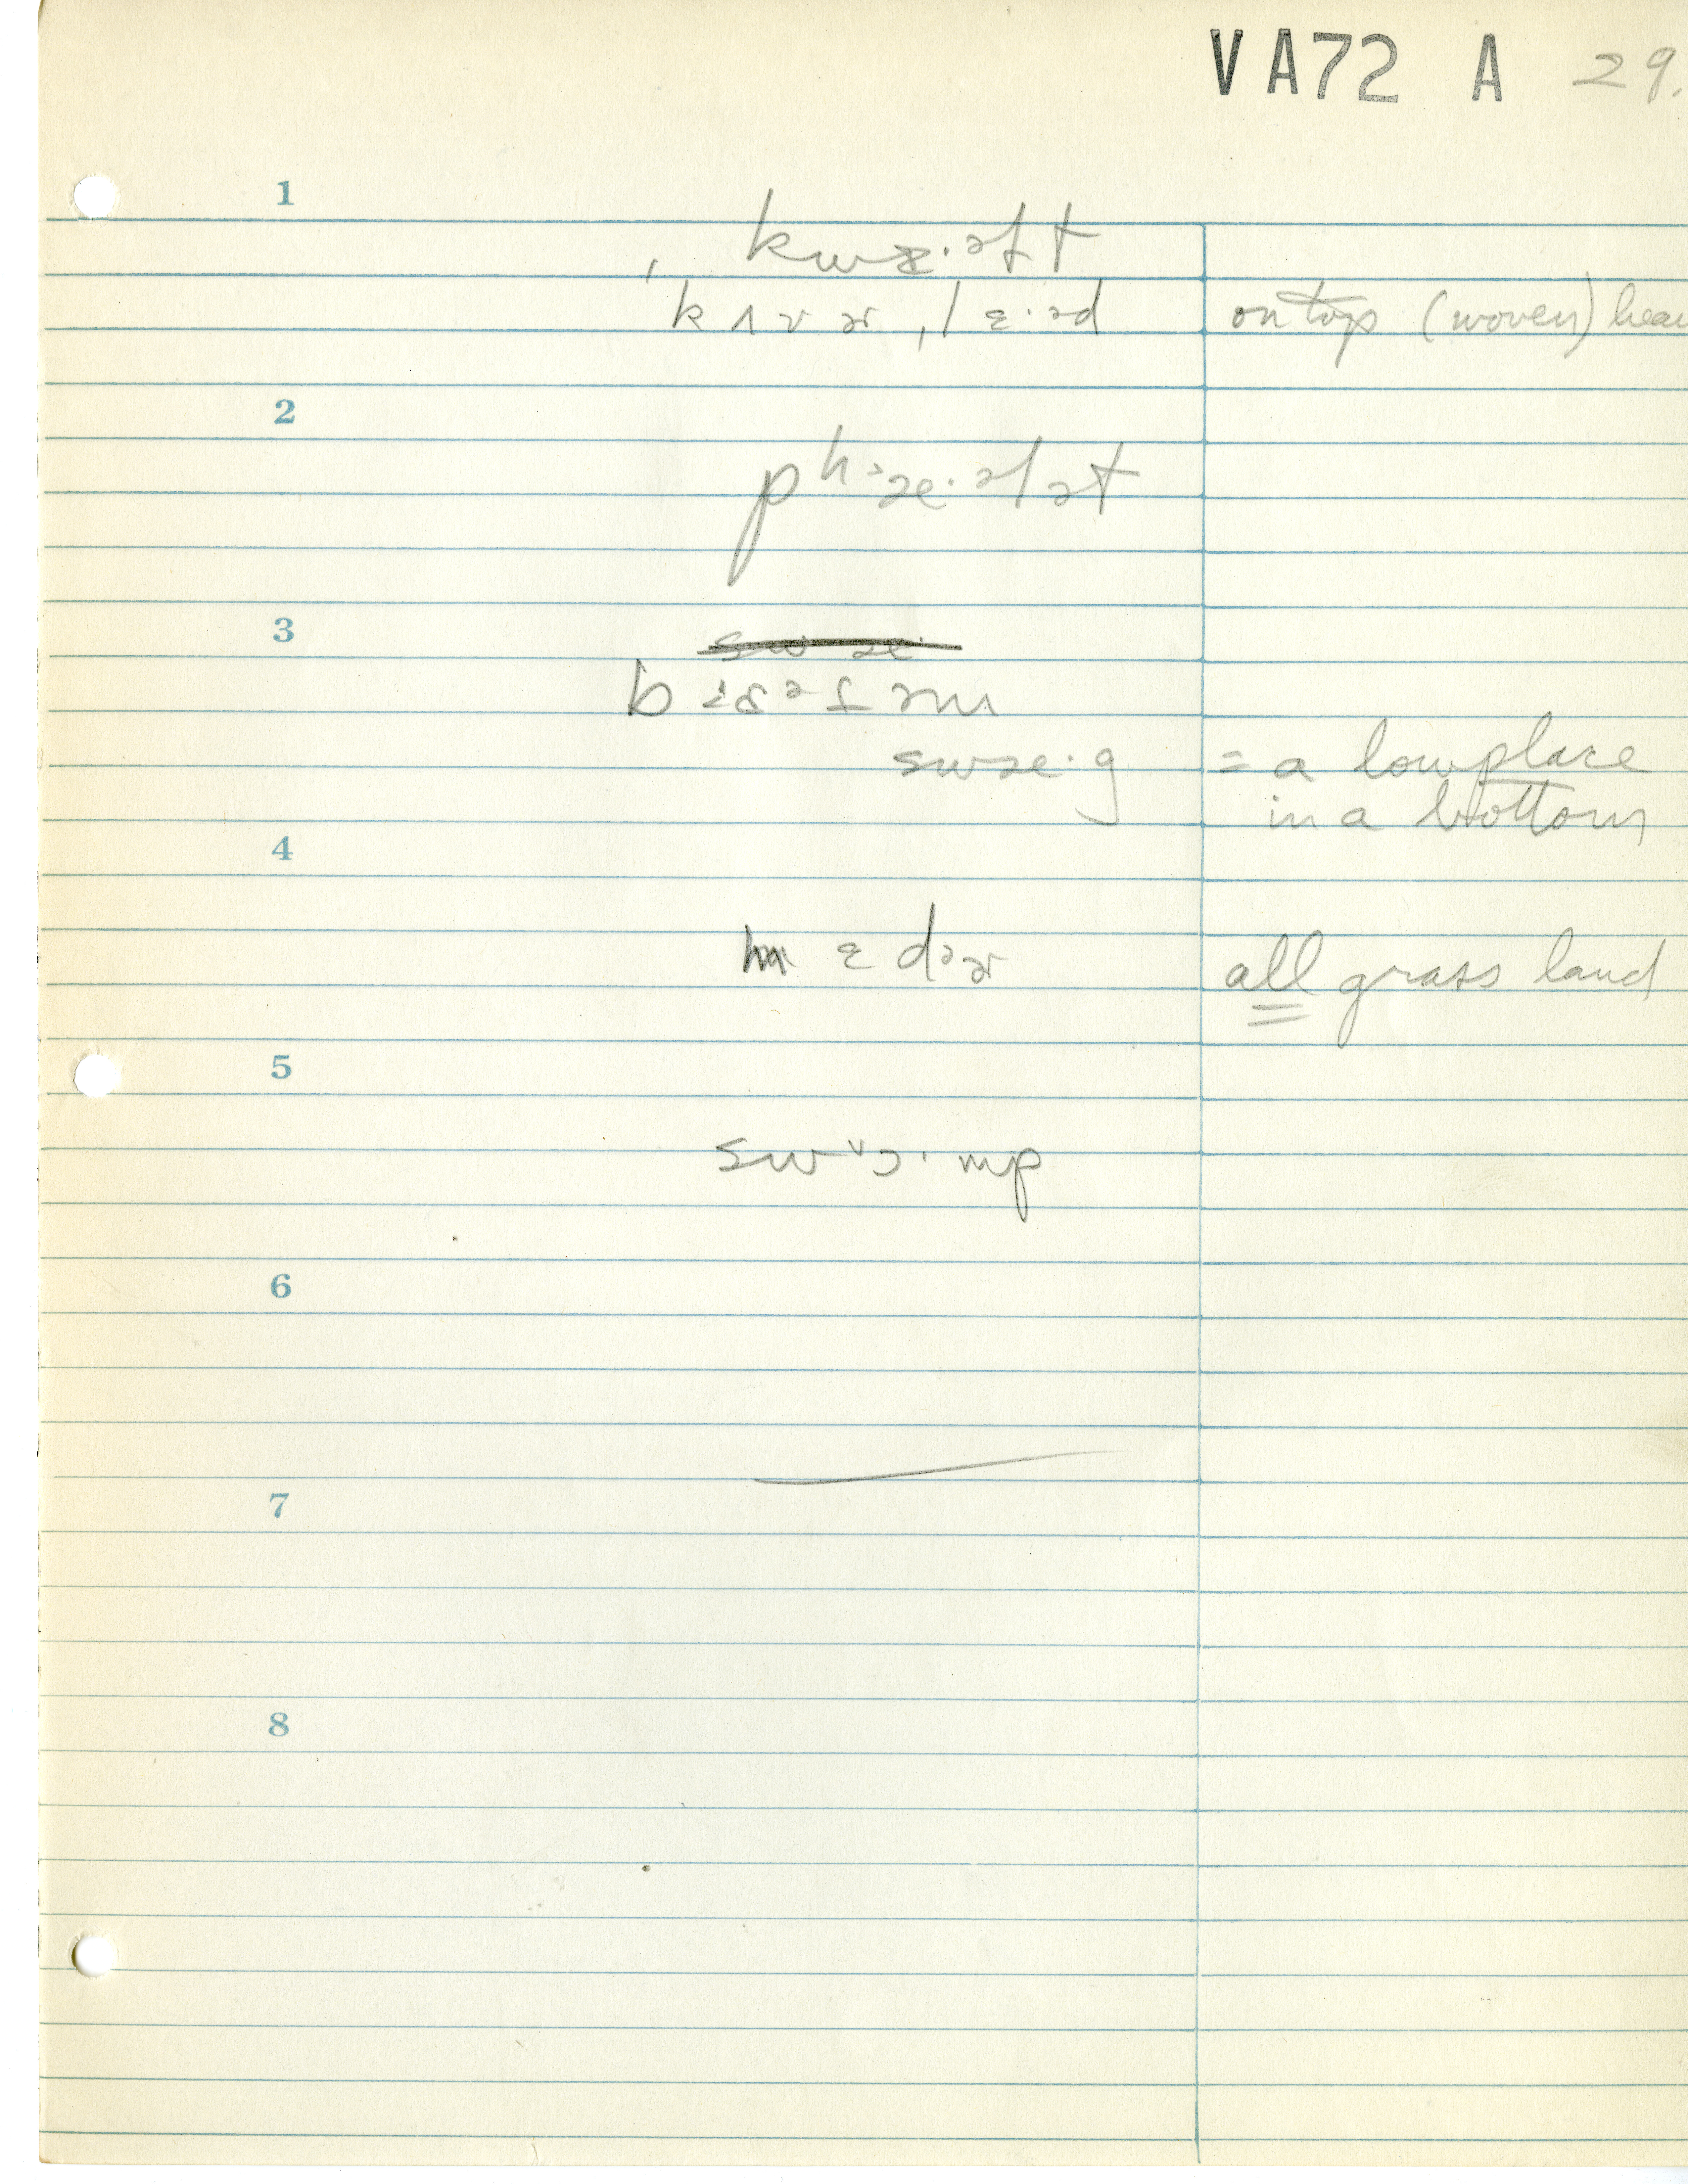 VA72 A 29.
1
kwɪ·əft
ˌkʌvɚˌlɛ·əd on top (woven) heav
2
pʰæ·ələt
3
swæ·
swæ·g = a low place
in a bottom
4
mɛdɚ all grass land
5
6
7
8